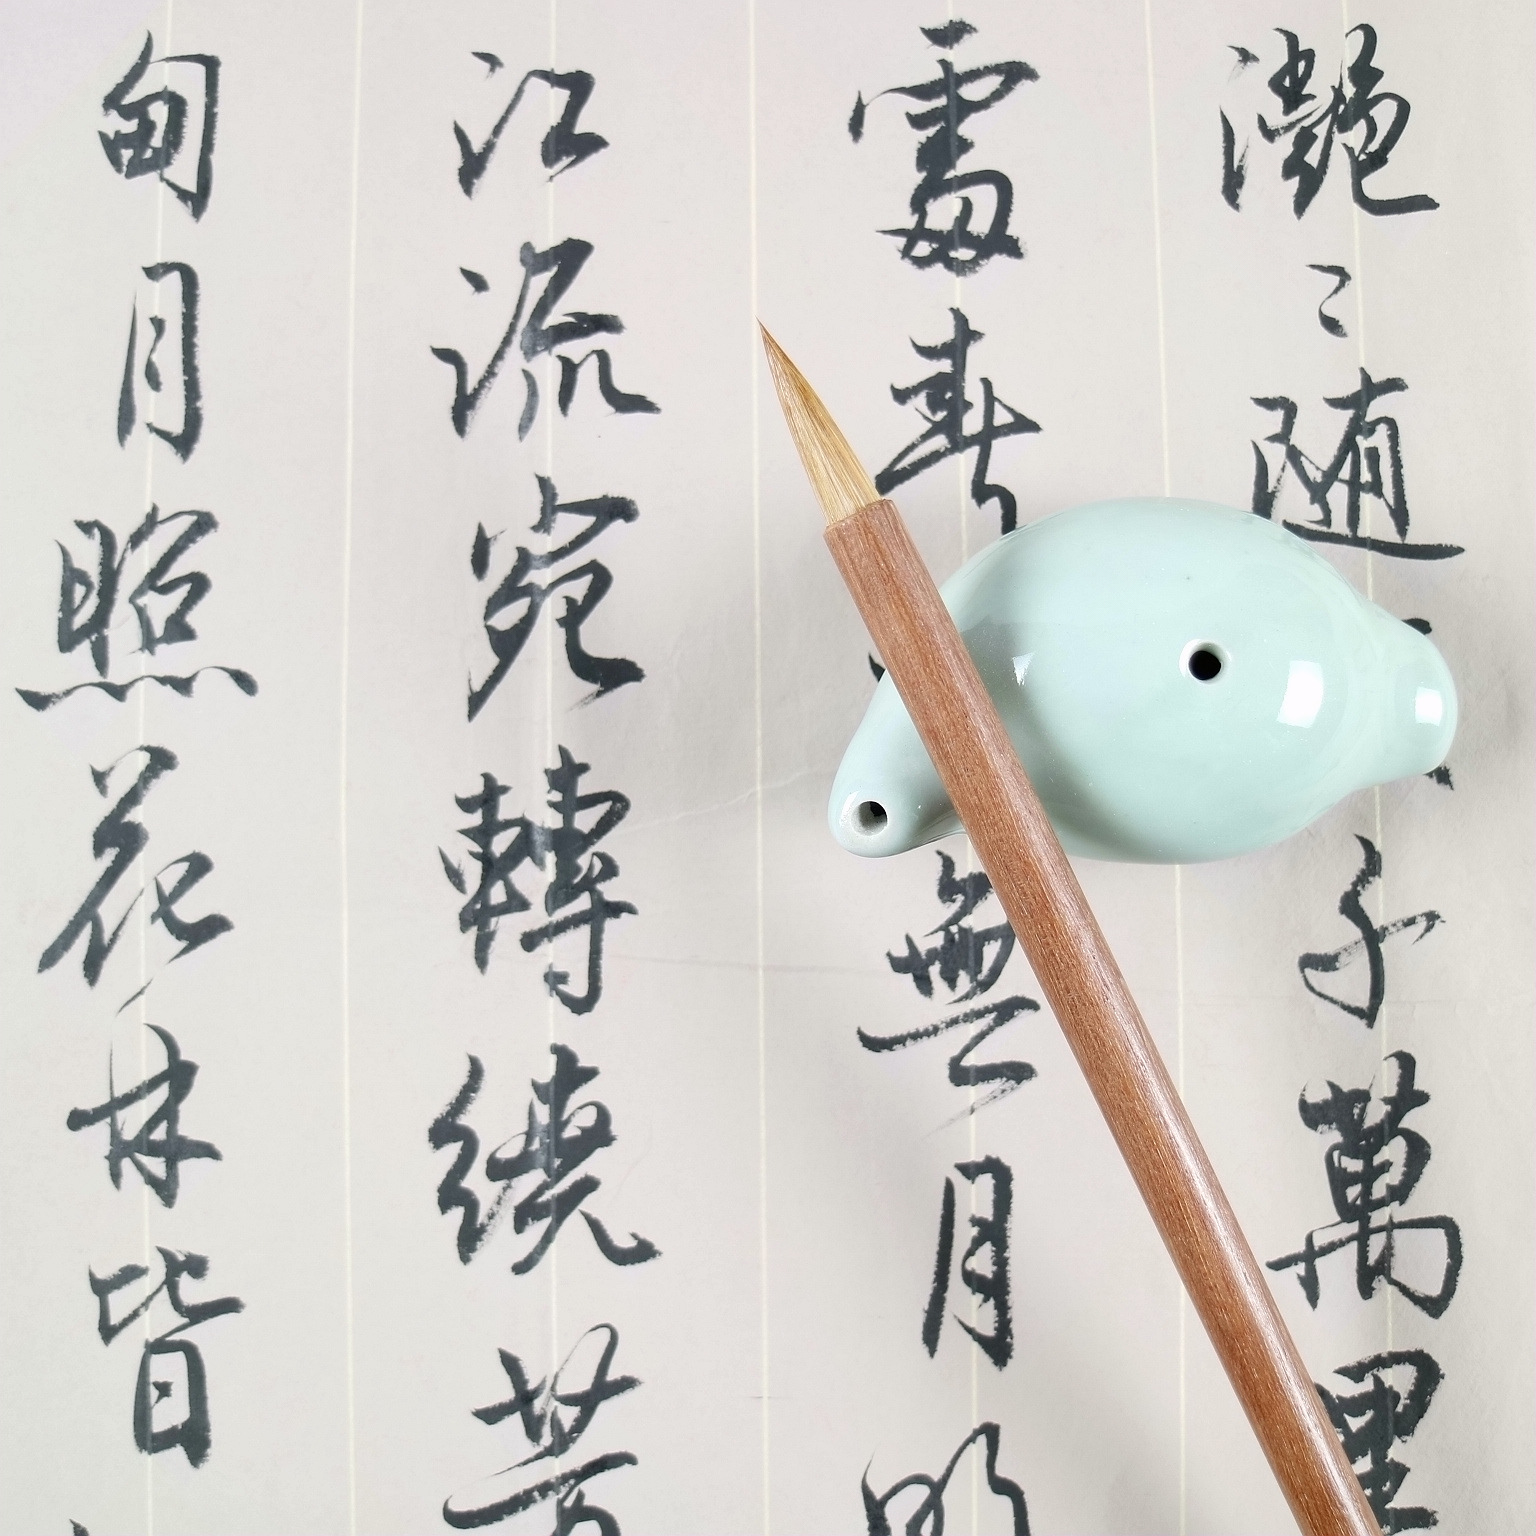 灧〻随千萬里
處春無月明
江流宛轉繞芳
甸月照花林皆